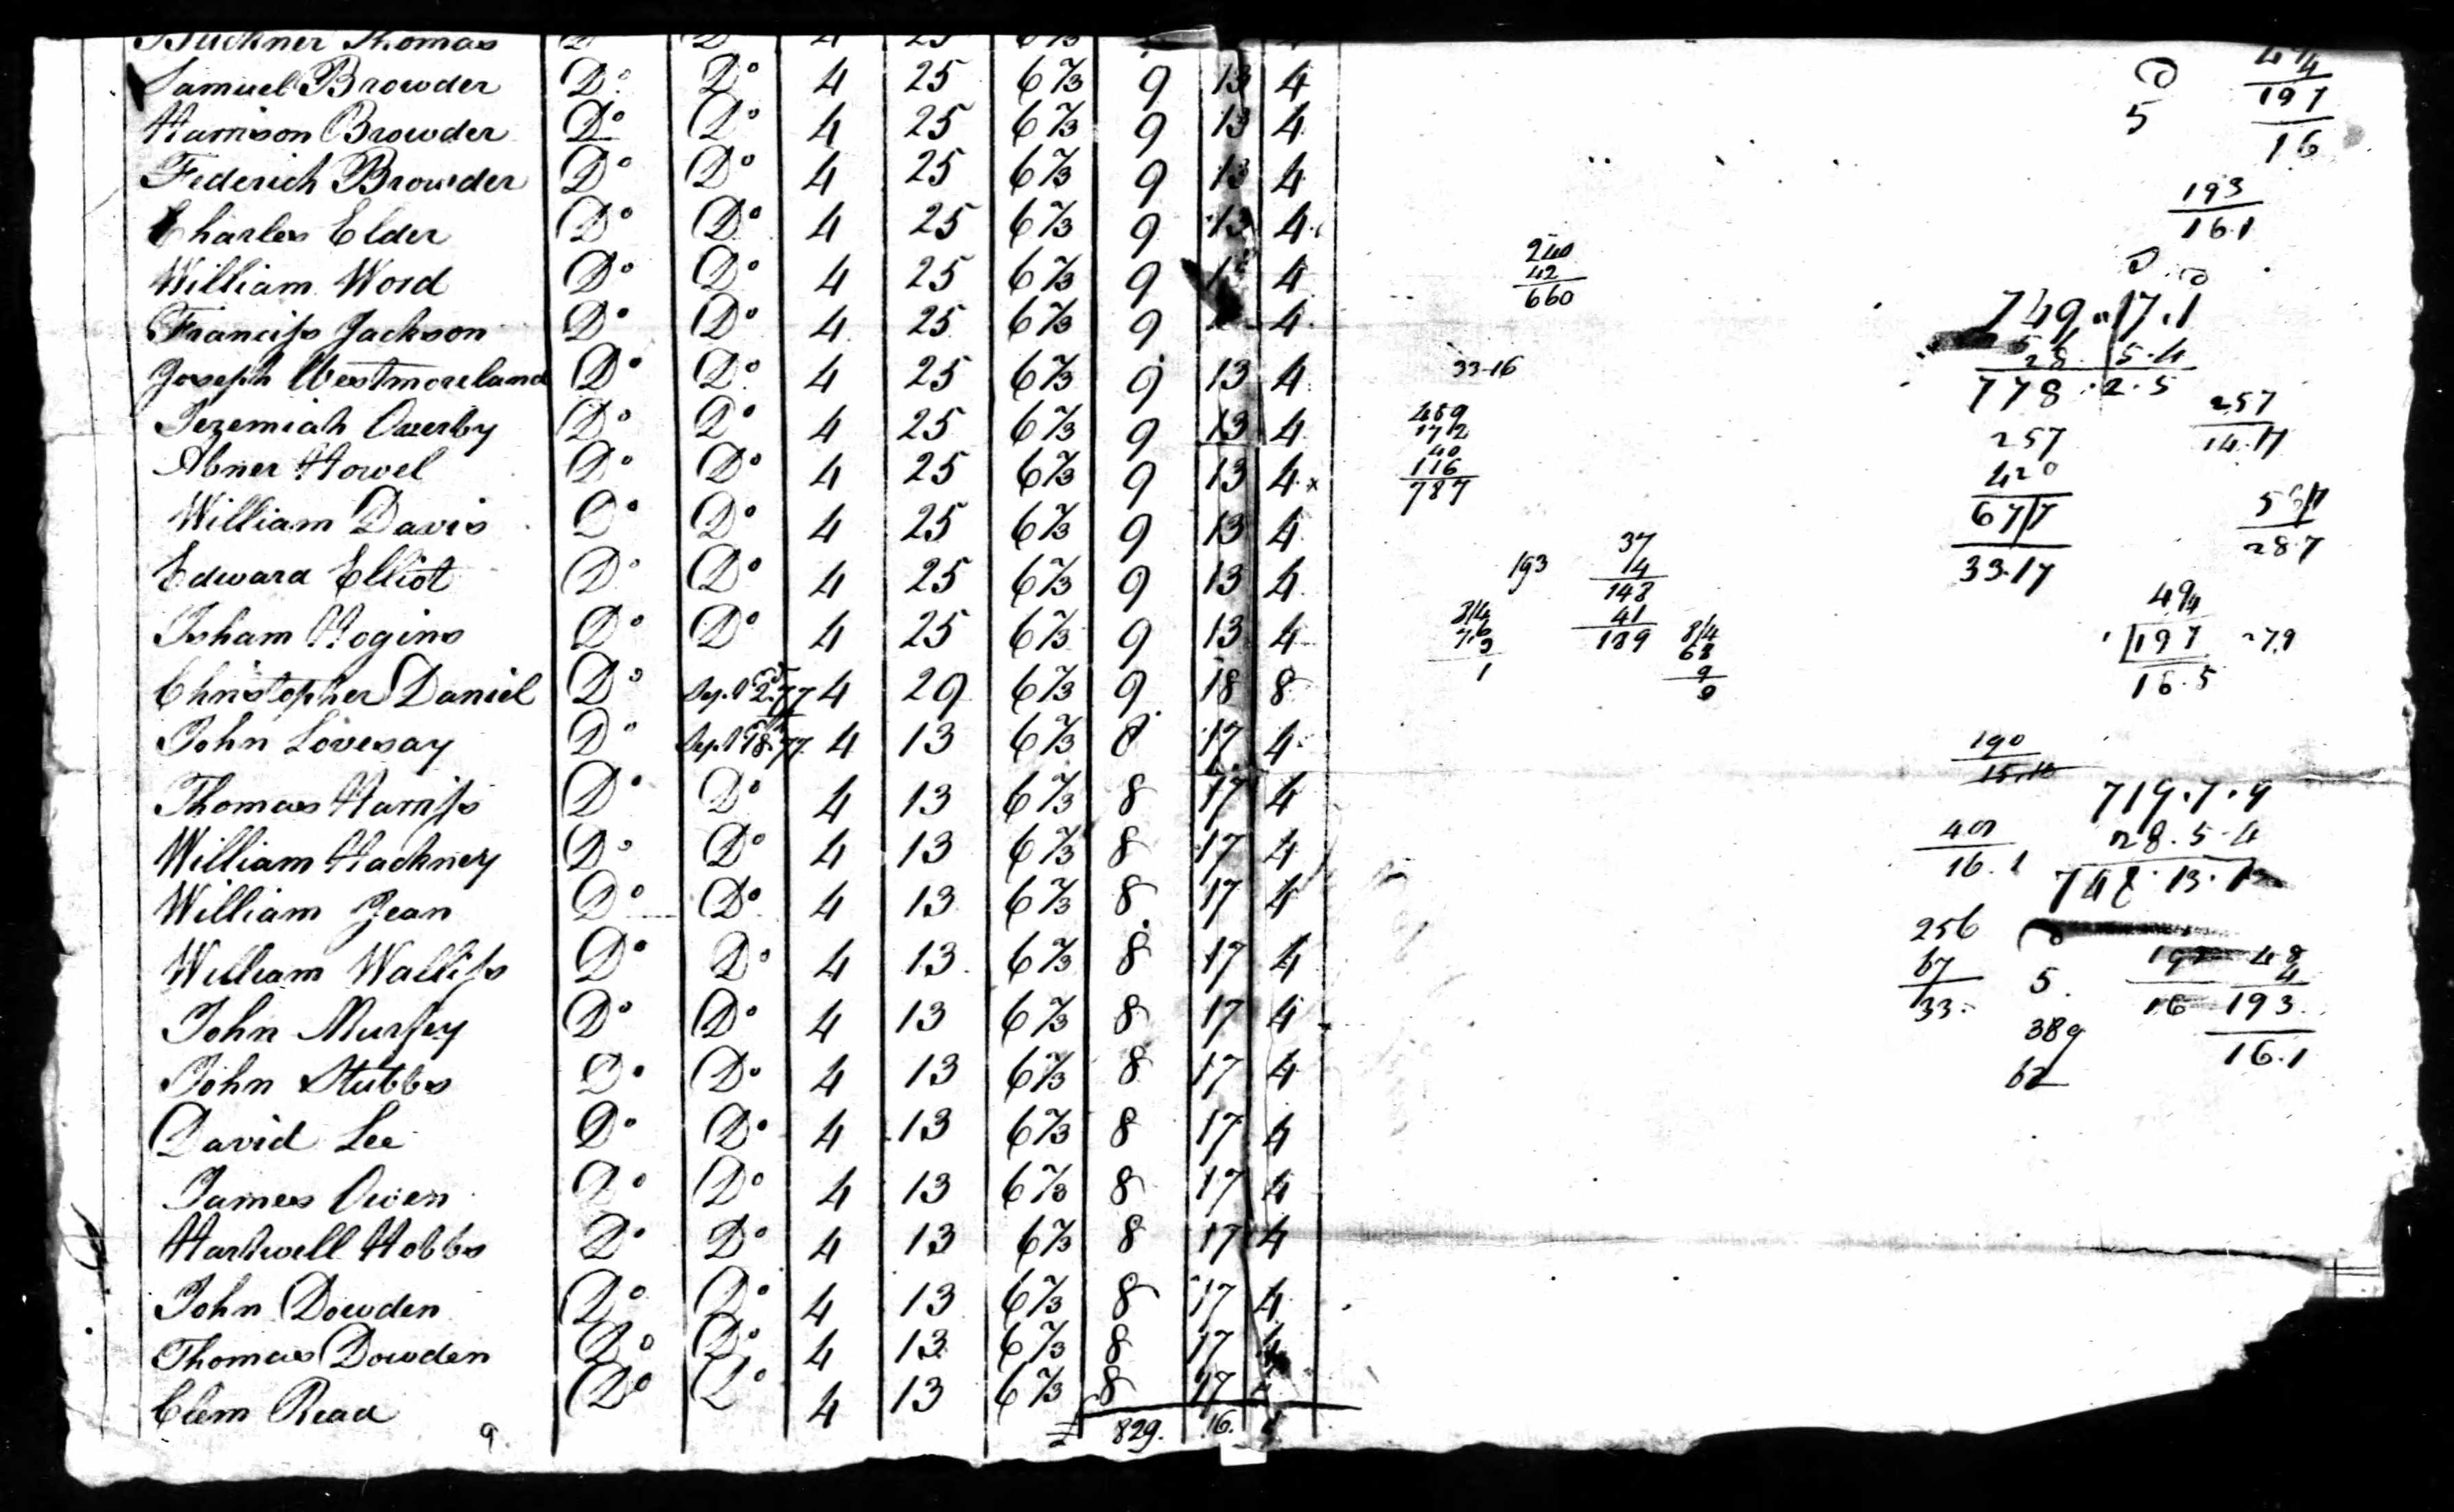 Buckner Thomas Do Do 4 25 6 2/3
Samuel Browder Do Do 4 25 6 2/3 9 13 4
Harrison Browder Do Do 4 25 6 2/3 9 13 4
Federich Browder Do Do 4 25 6 2/3 9 13 4
Charles Elder Do Do 4 25 6 2/3 9 13 4
William Word Do Do 4 25 6 2/3 9 4
Franciss Jackson Do Do 4 25 6 2/3 9 4
Joseph Westmoreland Do Do 4 25 6 2/3 9 13 4
Jeremiah Overby Do Do 4 25 6 2/3 9 13 4
Abner Howel Do Do 4 25 6 2/3 9 13 4
William Davis Do Do 4 25 6 2/3 9 13 4
Edward Elliot Do Do 4 25 6 2/3 9 13 4
Isham Hogins Do Do 4 25 6 2/3 9 13 4
Christopher Daniel Do Sept 2d 77 4 29 6 2/3 9 18 8
John Lovesay Do Sept 18th 77 4 13 6 2/3 8 17 4
Thomas Harriss Do Do 4 13 6 2/3 8 17 4
William Hackney Do Do 4 13 6 2/3 8 17 4
William Jean Do Do 4 13 6 2/3 8 17 4
William Walliss Do Do 4 13 6 2/3 8 17 4
John Murfey Do Do 4 13 6 2/3 8 17 4
John Stubbs Do Do 4 13 6 2/3 8 17 4
David Lee Do Do 4 13 6 2/3 8 17 4
James Owen Do Do 4 13 6 2/3 8 17 4
Hartwell Hobbs Do Do 4 13 6 2/3 8 17 4
John Dowden Do Do 4 13 6 2/3 8 17 4
Thomas Dowden Do Do 4 13 6 2/3 8 17
Clem Read Do Do 4 13 6 2/3 8 17
9 £ 829. 16.
240
42
660
33-16
459
172
40
116
787
193
37
4
148
41
189
197
5 16
193
16.1
749.17.1
28 5.4
778.2.5
257
14.17
257
420
677
33.17
28.7
197 279
16.5
190
15.10
719.7.9
28.5.4
748.13.1
16.1
256
67
33
5
48
4
16 193
16.1
389
62